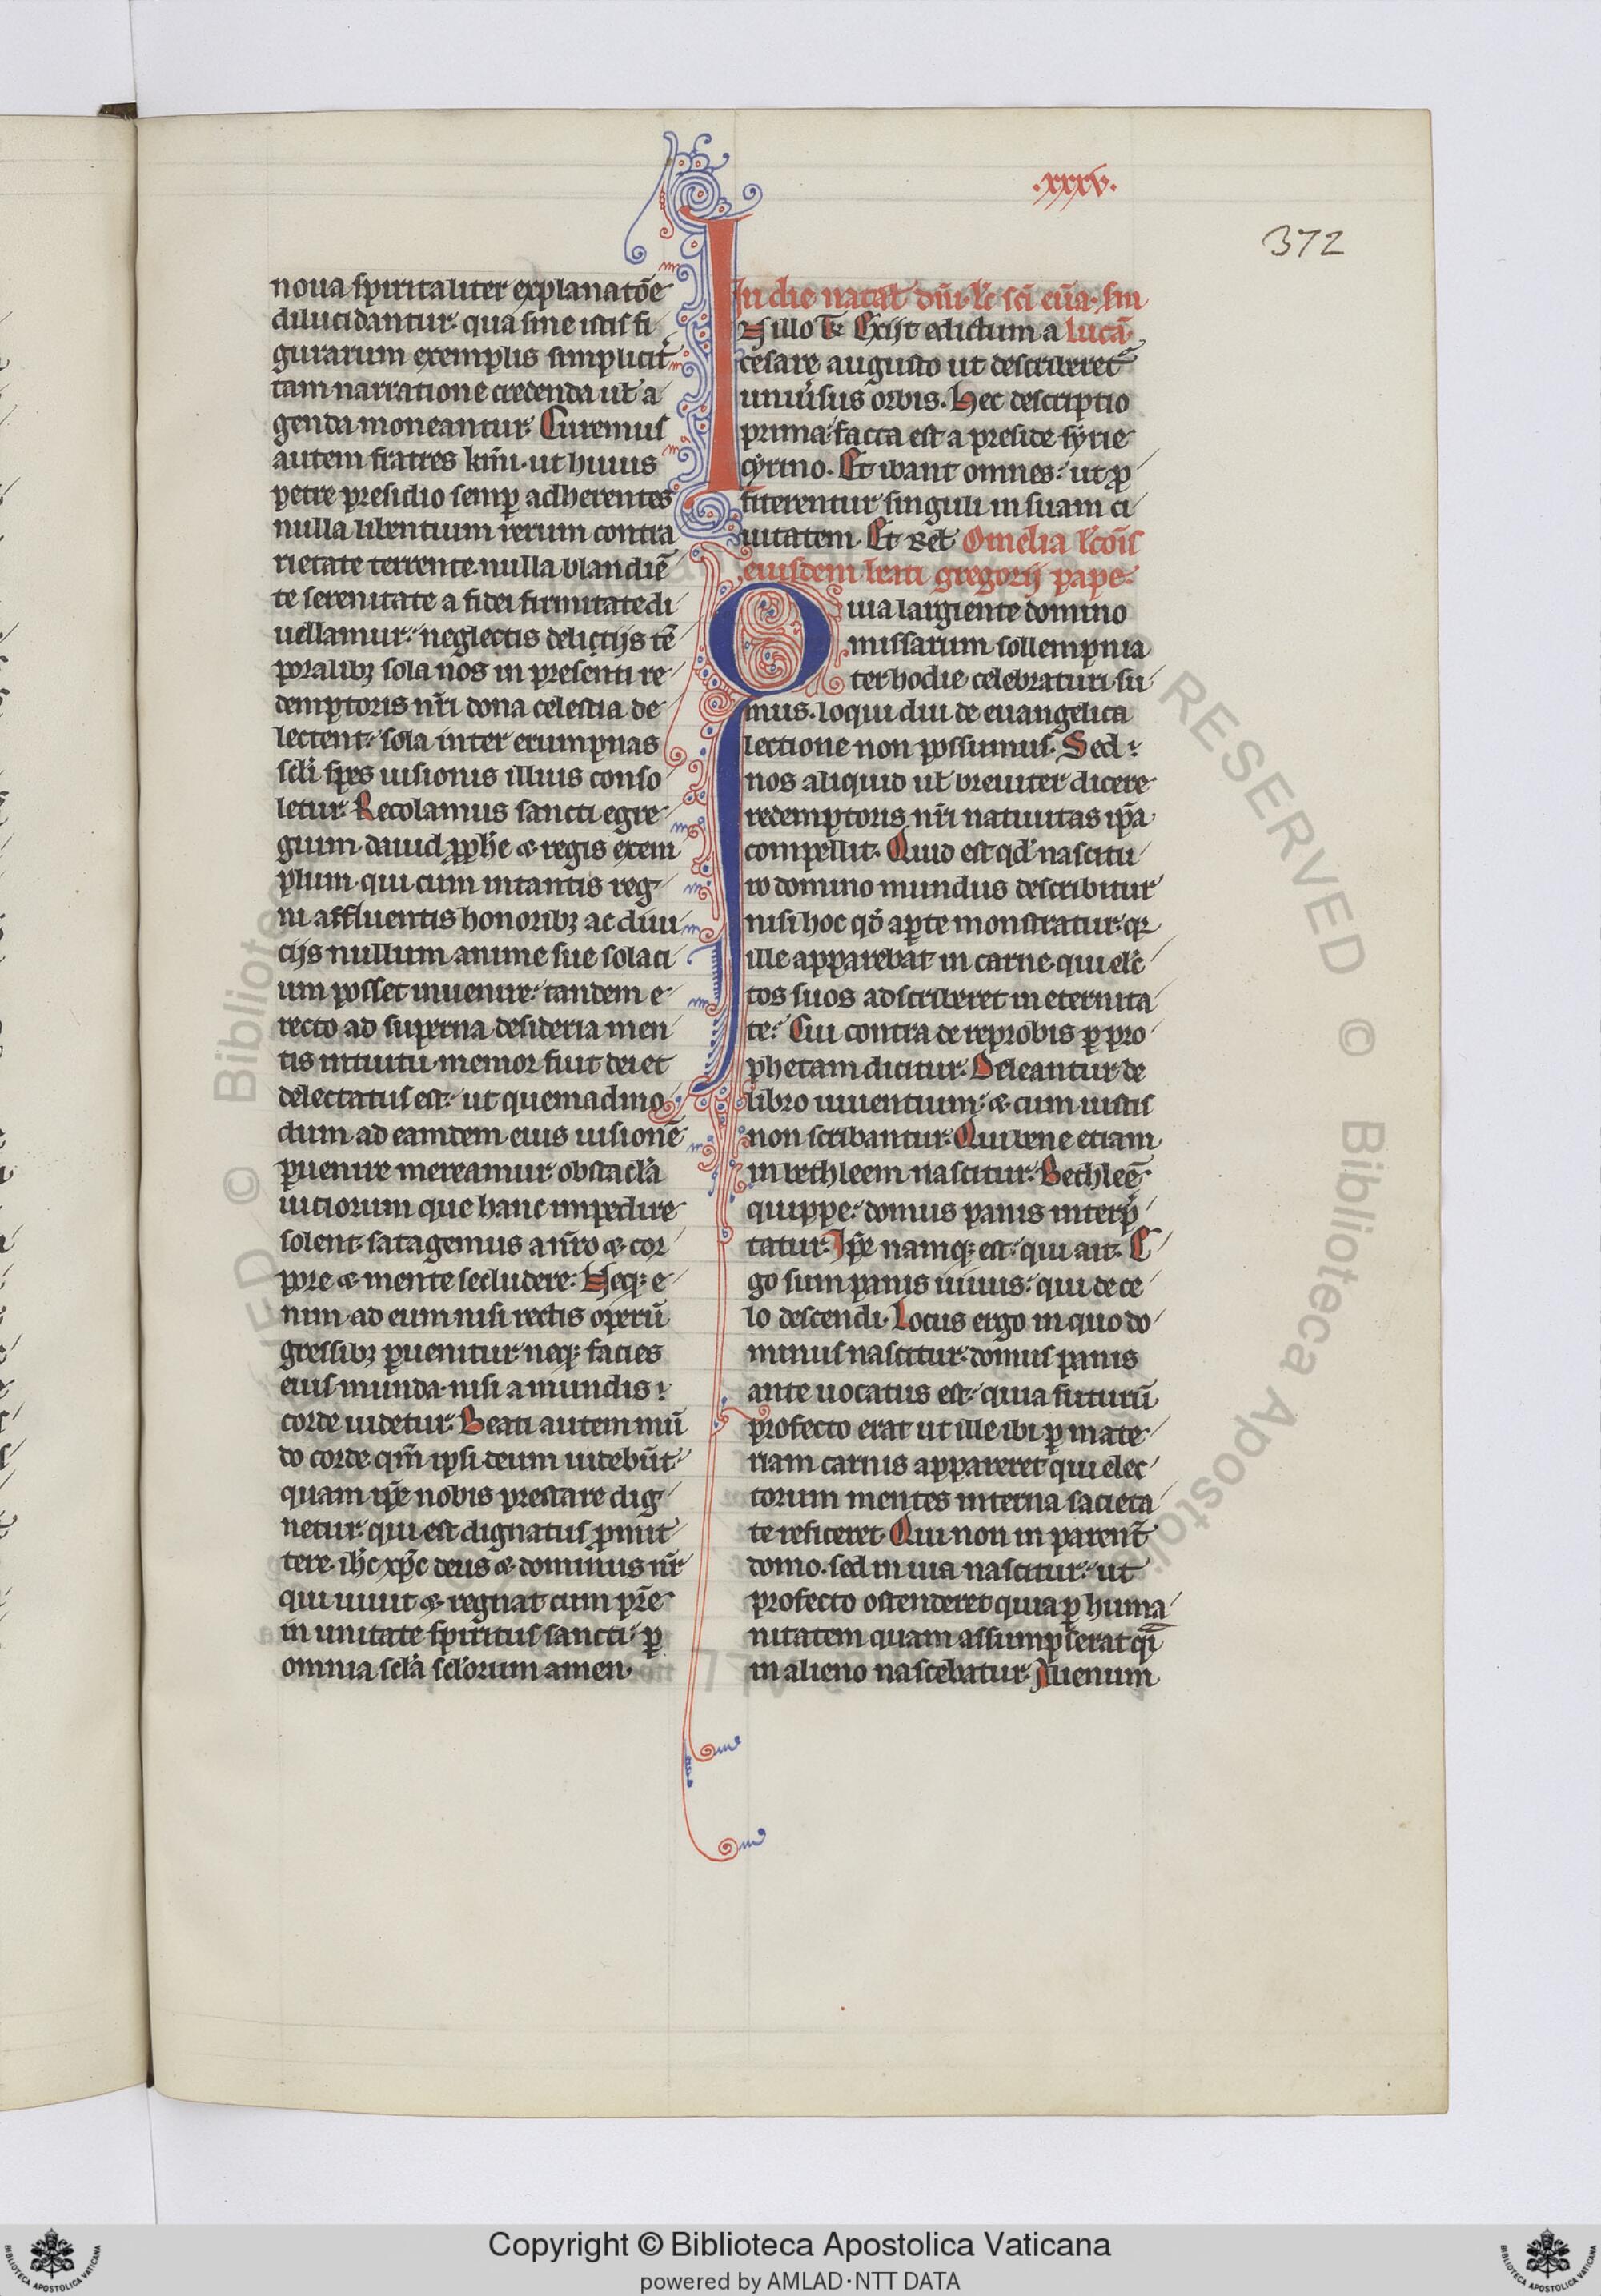 .xxxv.
372
noua spiritaliter explanatõe
dilucidantur. qua sine istis fi
gurarum exemplis simplicit᷑
tam narratione credenda uł a
genda moneantur. Curemus
autem fratres kr̃mi. ut huius
petre presidio semp̱ adherentes
nulla libentium rerum contra
rietate terrente. nulla blandiẽ
te serenitate a fidei firmitate di
uellamur. neglectis delictijs tẽ
poralibꝫ sola nos in presenti re
demptoris nr̃i dona celestia de
lectent. sola inter erumpnas
scl̃i spes uisionis illius conso
letur. Recolamus sancti egre
gium. dauid ꝓph̃e ⁊ regis exem
plum. qui cum in tantis reg
ni affluentis honoribꝫ ac diui
cijs nullum anime sue solaci
um posset inuenire. tandem e
recto ad superna desideria men
tis intuitu. memor fuit dei et
delectatus est. ut quemadmo
dum ad eamdem eius uisionẽ
ꝑuenire mereamur. obstacl̃a
uiciorum que hanc impedire
solent. satagemus a nr̃o ⁊ cor
pore ⁊ mente secludere. Neqꝫ e
nim ad eum nisi rectis operũ
gressibꝫ ꝑuenitur. neqꝫ facies
eius munda. nisi a mundis
corde uidetur. Beati autem mũ
do corde qm̃ ipsi deum uidebũt
quam ip̃e nobis prestare dig
netur. qui est dignatus ꝓmit
tere. ih̃c xp̃c deus ⁊ dominus nr̃
qui uiuit ⁊ regnat cum pr̃e
in unitate spiritus sancti. ꝑ
omnia scl̃a scl̃orum amen.
In die natal̃ dñi. lc̃ sc̃i eũa. sm
N illo t̃. Exijt edictum a lucã.
cesare augusto ut describeret᷑
uniu͛sus orbis. Hec descriptio
prima. facta est a preside syrie
cyrino. Et ibant omnes. ut ꝓ
fiterentur singuli in suam ci
uitatem. Et rel̃ Omelia lc̃õis
eiusdem beati gregorij pape.
Quia largiente domino
missarum sollempnia
ter hodie celebraturi su
mus. loqui diu de euangelica
lectione non possumus. Sed
nos aliquid uł breuiter dicere
redemptoris nr̃i natiuitas ip̃a
compellit. Quid est qd̃ nascitu
ro domino mundus describitur
nisi hoc qd̃ aꝑte monstratur. qꝛ
ille apparebat in carne. qui elc̃
tos suos adscriberet in eternita
te. Cui contra de reprobis ꝑ pro
phetam dicitur. Deleantur de
libro uiuentium. ⁊ cum iustis
non scribantur. Qui bene etiam
in bethleem nascitur. Bethleẽ
quippe. domus panis interp̃
tatur. Ip̃e namqꝫ est. qui ait. E
go sum panis uiuus. qui de ce
lo descendi. Locus ergo in quo do
minus nascitur. domus panis
ante uocatus est. quia futurũ
profecto erat ut ille ibi ꝑ mate
riam carnis appareret qui elec
torum mentes interna sacieta
te reficeret. Qui non in parent̃
domo. sed in uia nascitur. ut
profecto ostenderet quia ꝑ huma
nitatem quam assumpserat qĩ
in alieno nascebatur. Alienum
Copyright © Biblioteca Apostolica Vaticana
powered by AMLAD·NTT DATA